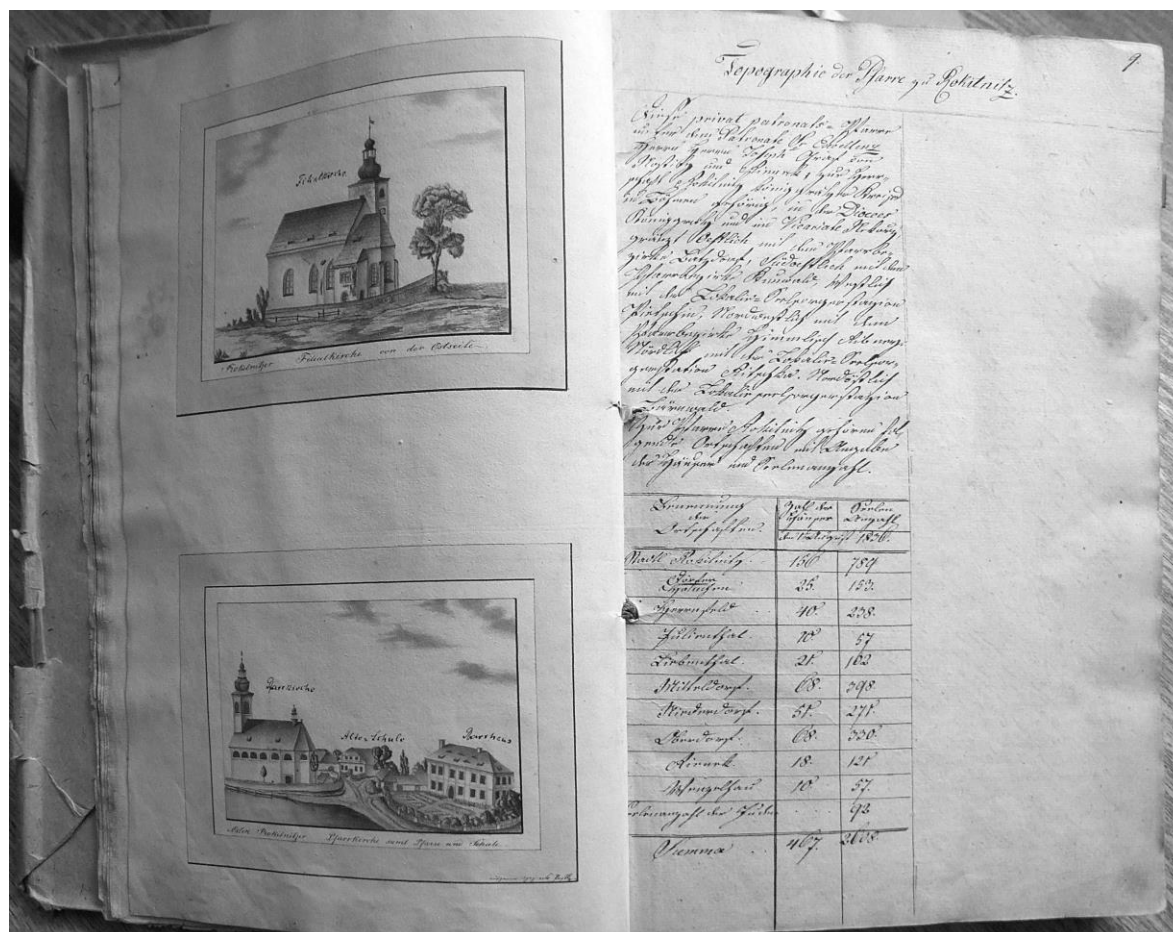 Filialkirche
Rokitnitzer Filialkirche von der Ostseite.
Pfarrkirche
Alte Schule
Pfarrhaus
Rokitnitzer Pfarrkirche samt Pfarre und Schule.
9.
Topographie der Pfarre zu Rokitnitz.
Diese privat patronats-Pfarre
unter dem Patronate Sr Excellenz
Herrn Herrn Joseph Graf von
Nostitz und Rhinek, zur Herr-
schaft Rokitnitz königgrätzer Kreises
in Böhmen gehörig, in der Diöces
Königgratz und im Vicariate
gränzt Oestlich mit dem Pfarrbe-
zirke Batzdorf, Südöstlich mit dem
Pfarrbezirke Kunwald, Westlich
mit der Lokalie-Seelsorgerstazion
Nordwestlich mit dem
Pfarrbezirke Himmlisch Ribney.
Nördlich mit der Lokalie-Seelsor-
gerstation Ritschka. Nordöstlich
mit der Lokalieseelsorgerstazion
Bärnwald.
Zur Pfarre Rokitnitz gehören fol-
gende Ortschaften mit Angabe
der Häuser und Seelenanzahl.
Benennung der Ortschaften. Zahl der Häuser Seelen Anzahl
im August 1836.
Stadt Rokitnitz. 156 789
25. 153.
Herrnfeld 40. 238.
Julienthal. 10. 57
Liebenthal. 21. 102
Mitteldorf. 68. 398.
Niederdorf. 51. 271.
Oberdorf. 68. 330.
Rinek 18. 121
10. 57.
Seelenanzahl der Juden 92
Summa 467. 2608.